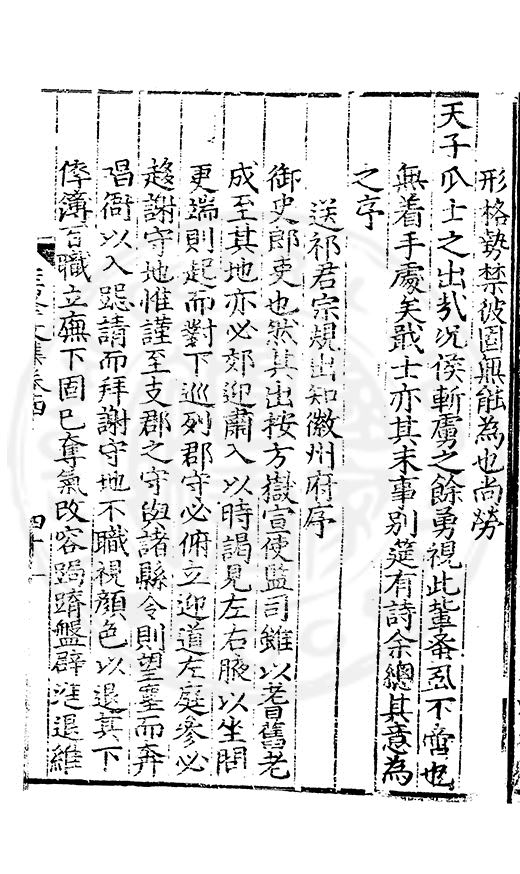 形格勢禁彼固無能為也尚勞
天子爪士之出哉况侯斬虜之餘勇視此蜚蚉虱不啻也
無着手處矣戢士亦其末事别筵有詩余總其意為
之序
送祁君宗規出知徽州府序
御史郎吏也然其出按方嶽宣使監司雖以耆舊老
成至其地亦必郊迎肅入以時謁見左右腋以坐問
更端則起而對下巡列郡守必俯立迎道左庭參必
趍謝守地惟謹至支郡之守與諸縣令則望塵而奔
唱衙以入跽請而拜謝守地不職視顔色以退其下
倅簿百職立廡下固已奪氣改容跼蹐盤辟逡退維
文集卷四
四十一